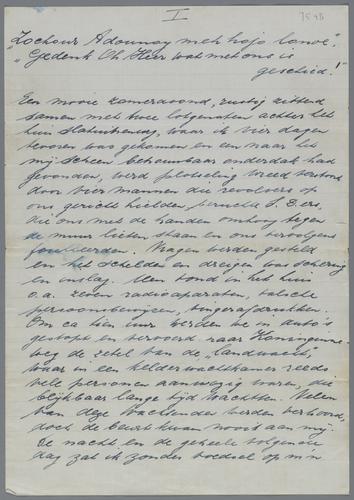 I
7548
"Zochour Adounoy meh hojo lonoe".
"Gedenk Oh Heer wat met ons is
geschied!"
Een mooie zomeravond, rustig zittend
samen met twee lotgenaten achter het
huis Statuutenweg, waar ik vier dagen
tevoren was gekomen en een naar het
mij scheen betrouwbaar onderdak had
gevonden, werd plotseling wreed verstoord
door vier mannen die revolvers op
ons gericht hielden, beruchte S.D.ers,
die ons met de handen omhoog tegen
de muur lieten staan en ons vervolgens
fouilleerden. Vragen werden gesteld
en het schelden en dreigen was schering
en inslag. Men vond in het huis
o.a. zeven radioapparaten, valsche
persoonsbewijzen, vingerafdrukken.
Om ca tien uur werden we in auto's
gestopt en vervoerd naar Koninginne-
weg de zetel van de "landwacht",
waar in een kelderwachtkamer reeds
vele personen aanwezig waren, die
blijkbaar lange tijd wachtten. Velen
van deze wachtenden werden verhoord,
doch de beurt kwam nooit aan mij.
De nacht en de geheele volgende
dag zat ik zonder voedsel op m'n